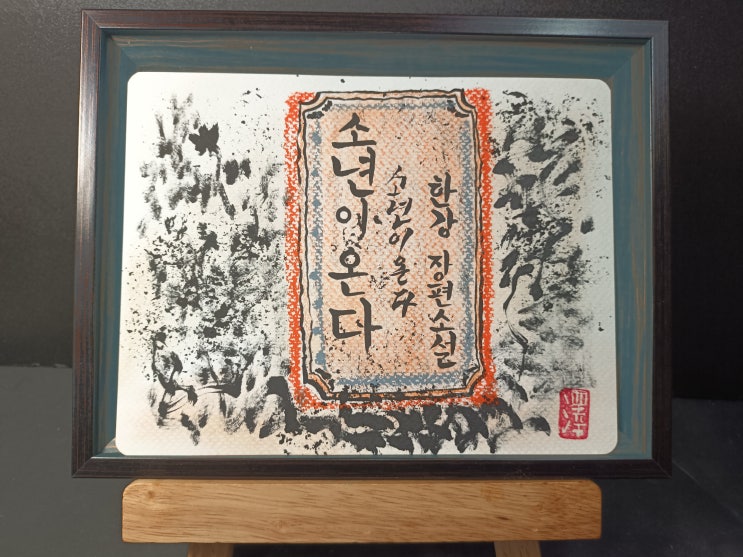 소년이온다
소년이온다
한강 장편소설